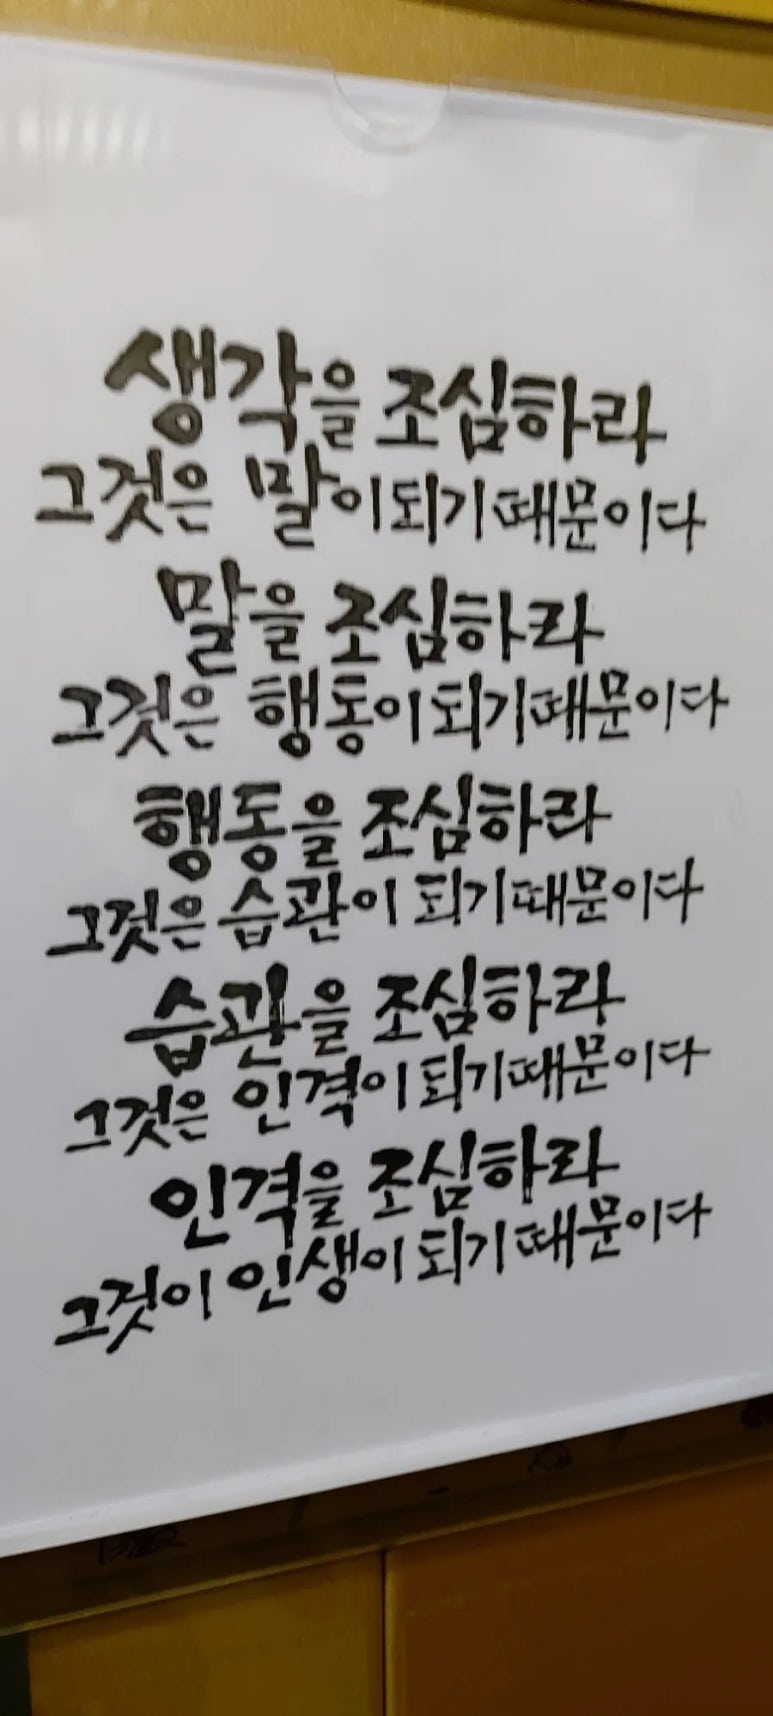 생각을 조심하라
그것은 말이되기때문이다
말을 조심하라
그것은 행동이되기때문이다
행동을 조심하라
그것은 습관이 되기때문이다
습관을 조심하라
그것은 인격이되기때문이다
인격을 조심하라
그것이 인생이되기때문이다